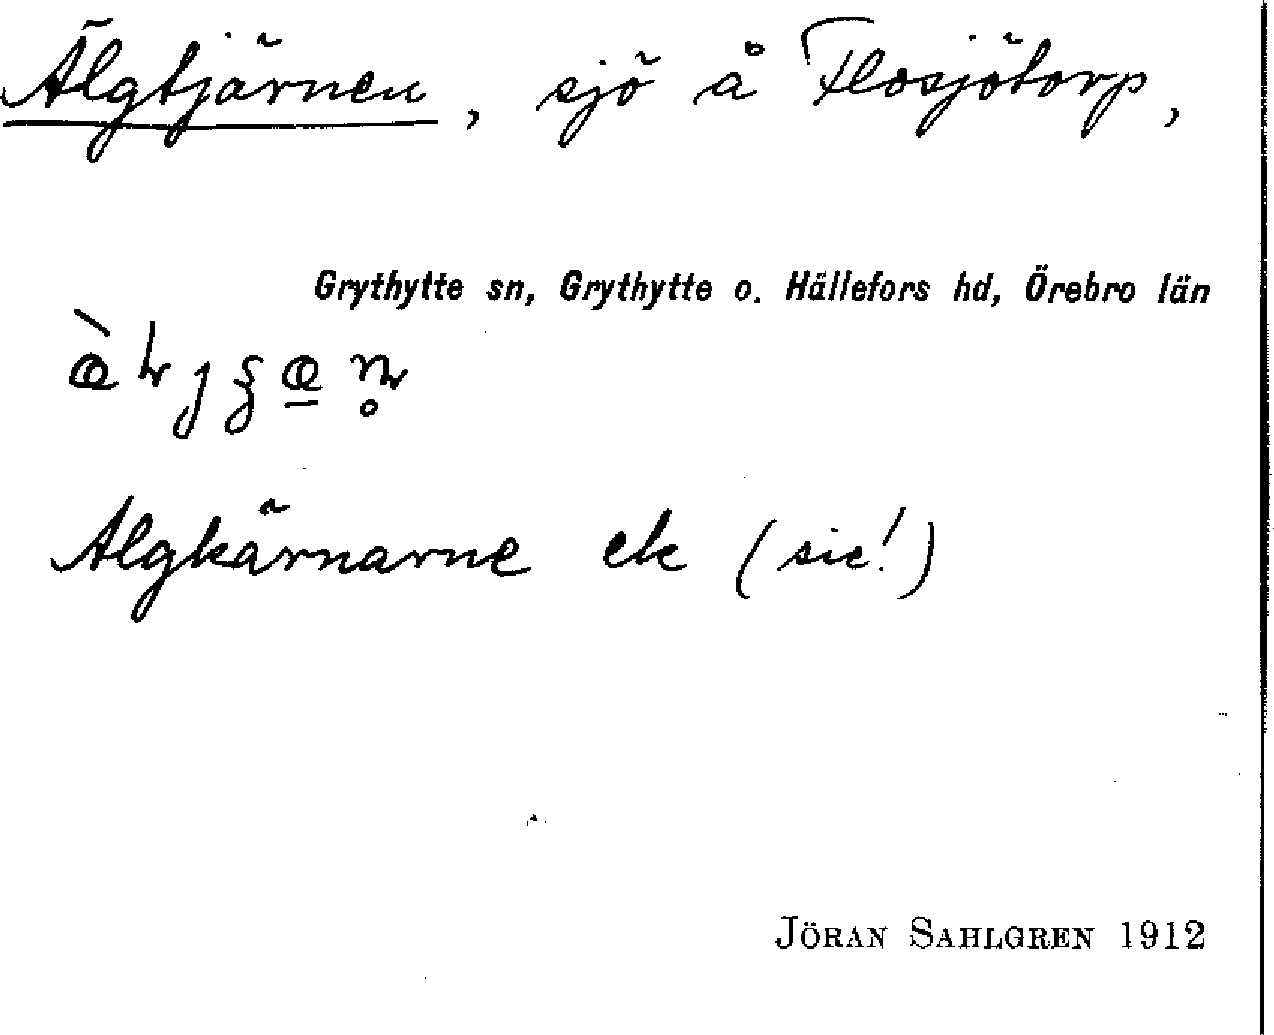 Älgtjärnen, sjö å Flosjötorp,
Grythytte sn, Grythytte o. Hällefors hd, Örebro län
Älgkärnarne ek (sic!)
JÖRAN SAHLGREN 1912